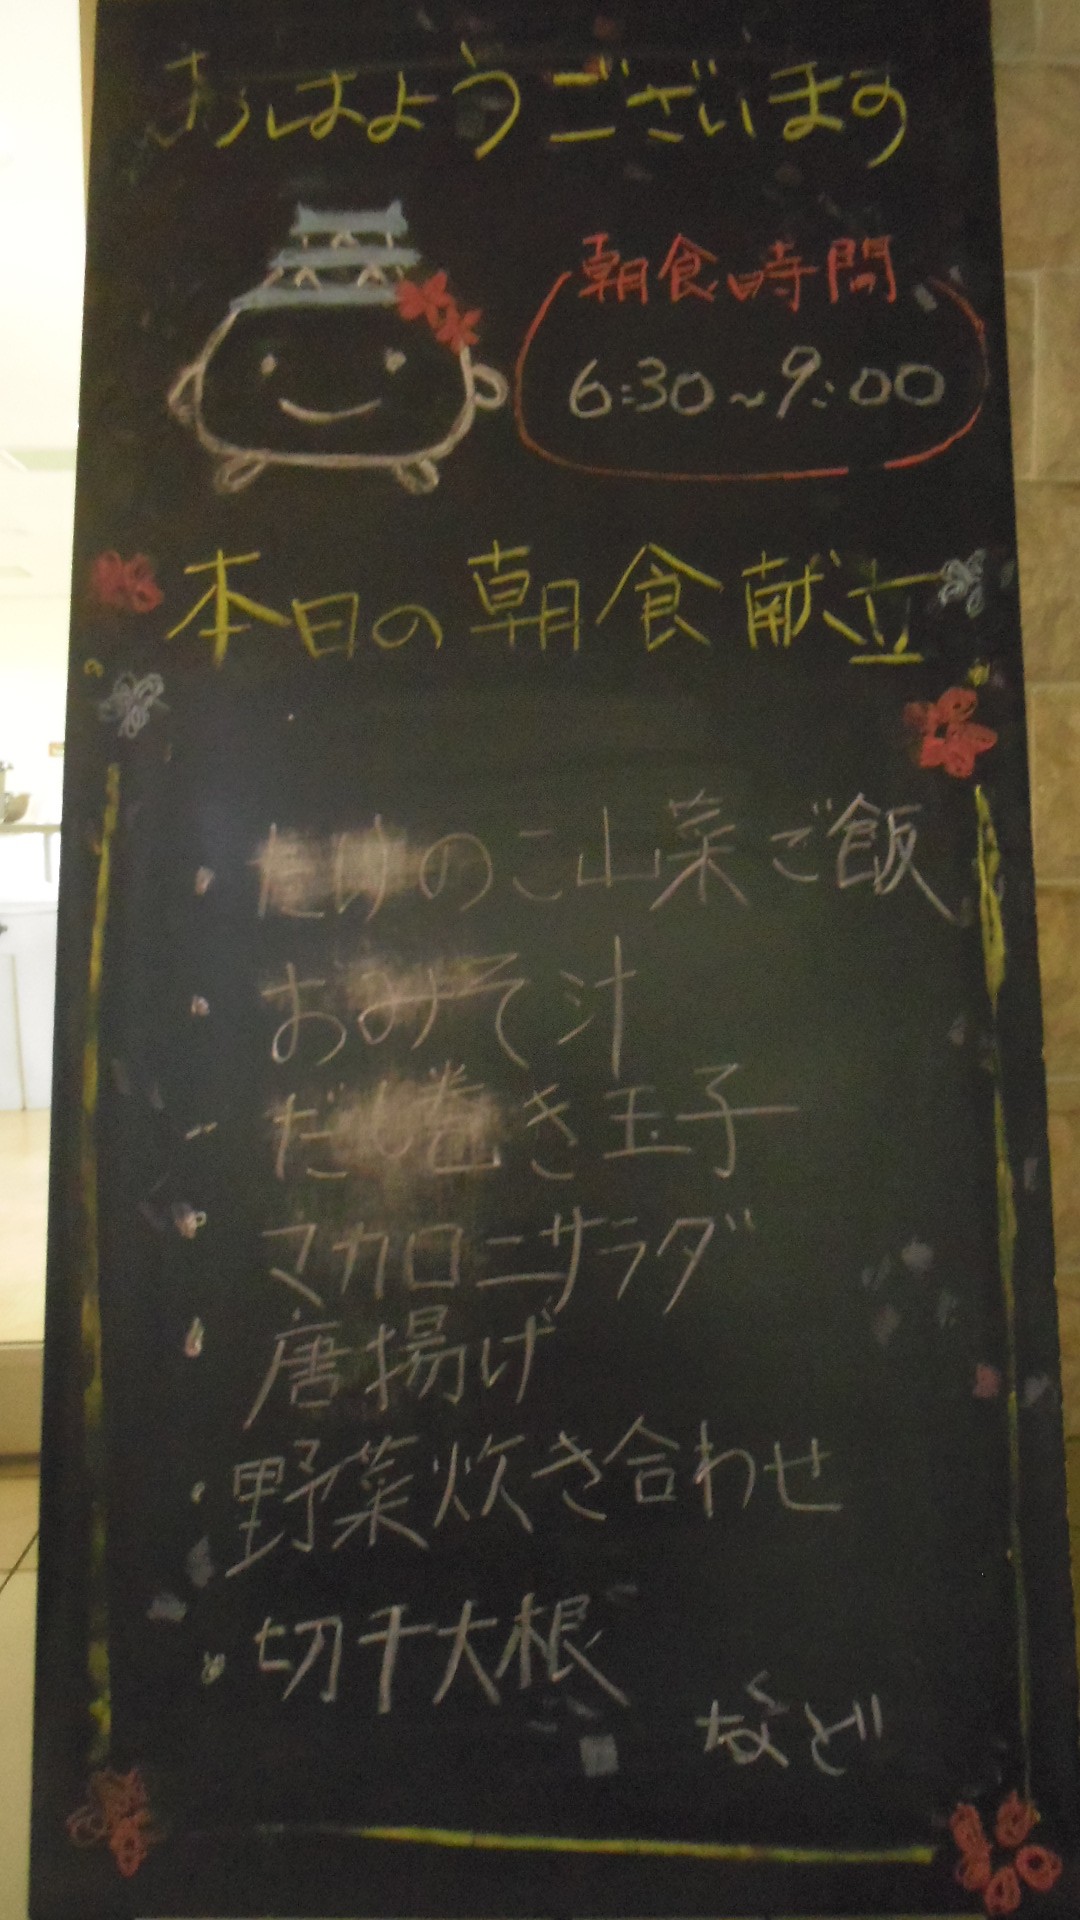 おはようございます
朝食時間
6:30~9:00
本日の朝食献立
・たけのこ山菜ご飯
・おみそ汁
・だし巻き玉子
・マカロニサラダ
・唐揚げ
・野菜炊き合わせ
・切干大根
など